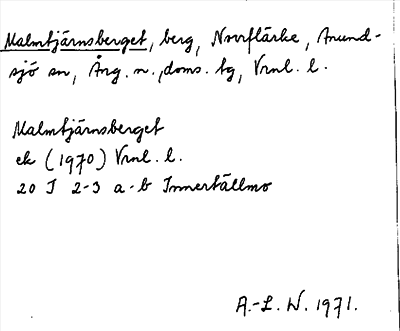 Malmtjärnsberget, berg, Norrflärke, Anund-
sjö sn, Ång. n., doms. tg, Vrnl. l.
Malmtjärnsberget
ek (1970) Vrnl. l.
20 I 2-3 a-b Innertällmo
A.-L. W. 1971.